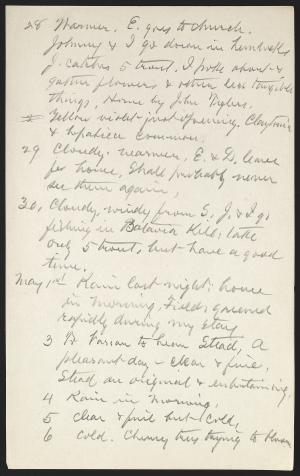 28 Warmer. E. goes to church.
Johnny & I go down in hemlocks
J. catches 5 trout. I poke about &
gather flowers & other less tangible
things, Home by John
Yellow violet just opening. Claytonia
& hepatica common.
29 Cloudy. warmer, E. & D. leave
for home, Shall probably never
see them again,
30, Cloudy, windy from S., J. & I go
fishing in Batavia Kill, take
only 5 trout, but have a good
time,
May 1st Rain last night. home
in morning, Fields greened
rapidly during my stay
3 To Vassar to hear Stead, A
pleasant day - clear & fine,
Stead an original & entertaining,
4 Rain in morning,
5 clear & fine but cold,
6 cold. Cherry trees trying to bloom